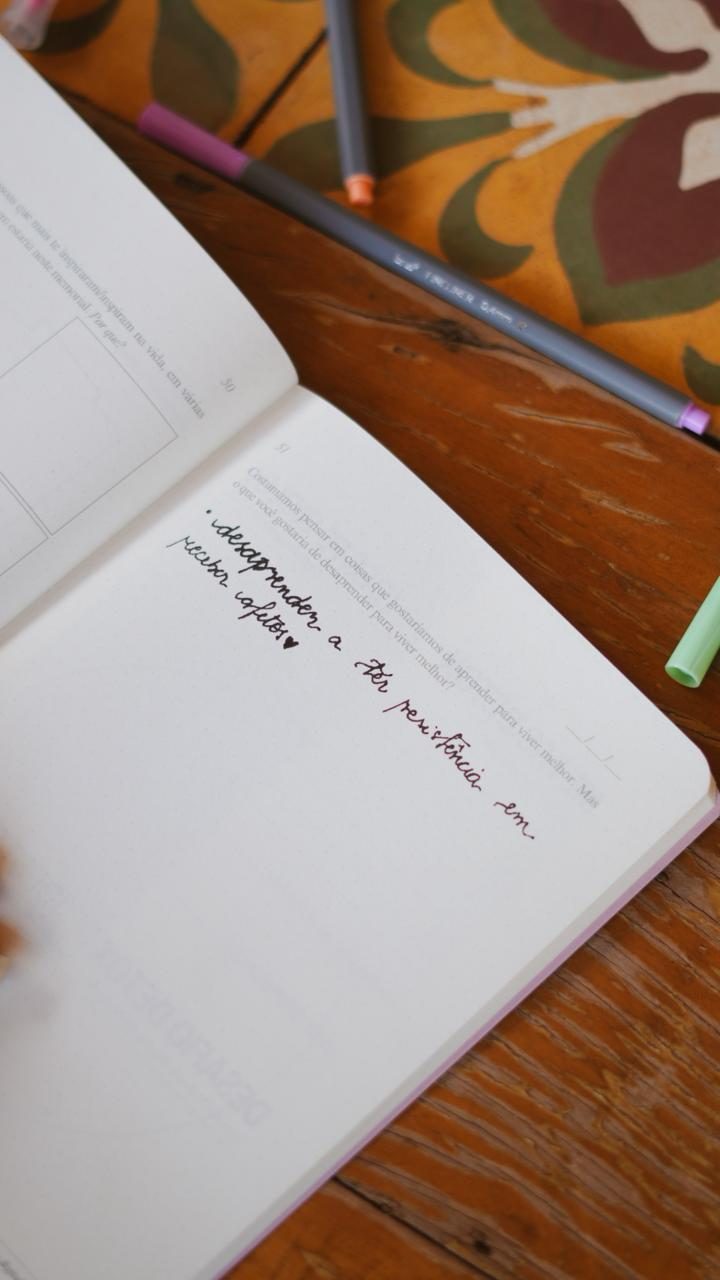 inspiraram/inspiram na vida, em várias
estaria neste memorial. Por que?
50
51
Costumamos pensar em coisas que gostaríamos de aprender para viver melhor. Mas
o que você gostaria de desaprender para viver melhor?
• desaprender a ter resistência em
receber afetos♥
DESAFIO DETOX
FINELINER